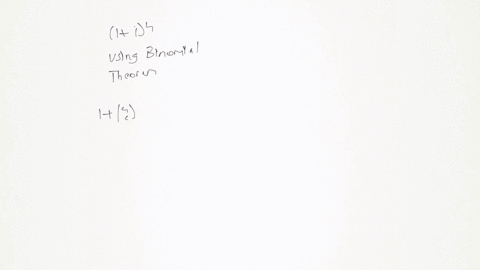 (1+i)^4
using Binomial
Theorem
1+(4